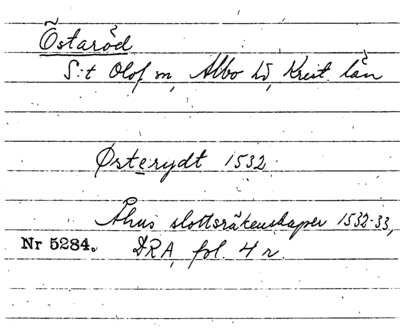 Östaröd
S:t Olof sn, Albo hd, Krist. län
Østerydt 1532
Åhus slottsräkenskaper 1532-33,
Nr 5284. DRA, fol. 4 r.